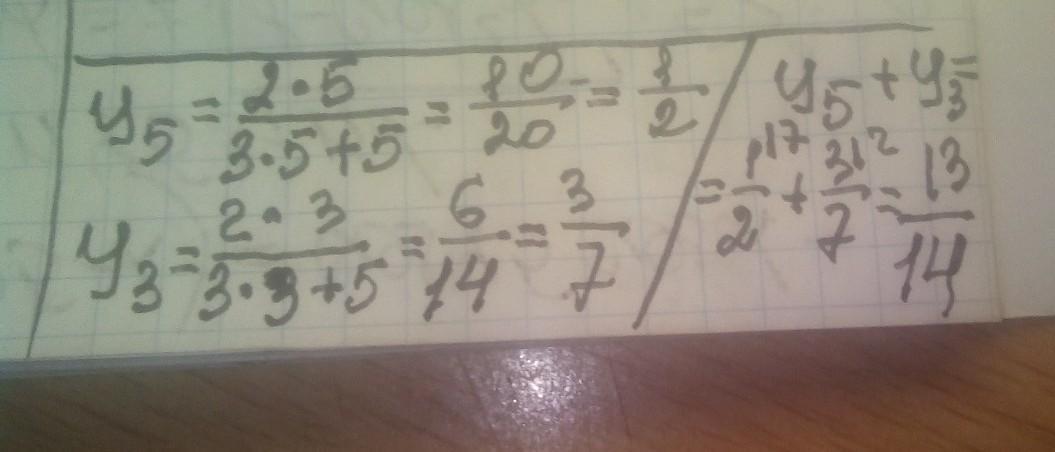 y₅ = 2·5/(3·5+5) = 10/20 = 1/2
y₃ = 2·3/(3·3+5) = 6/14 = 3/7
y₅ + y₃ =
= 1/2 ⁽⁷ + 3/7 ⁽² = 13/14